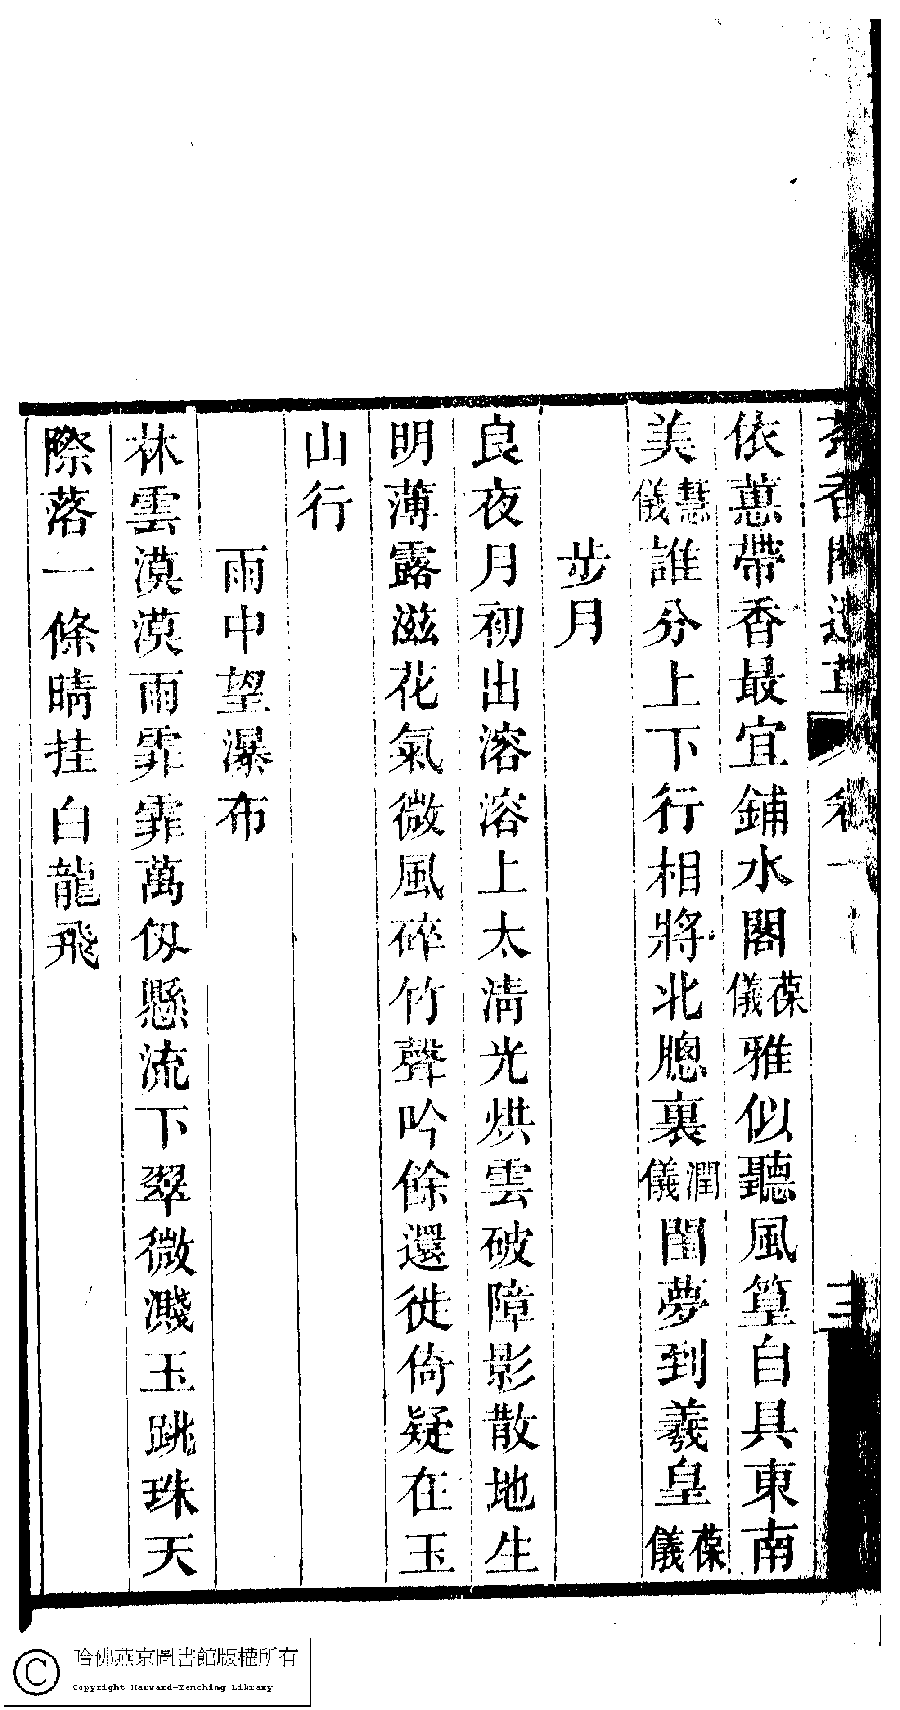 茶香閣遺草 卷一 三
依蕙帶香最宜鋪水閣葆儀雅似聽風篁自具東南
美慧儀誰分上下行相將北牕裏潤儀閨夢到羲皇葆儀
步月
良夜月初出溶溶上太清光烘雲破障影散地生
明薄露滋花氣微風碎竹聲吟餘還徙倚疑在玉
山行
雨中望瀑布
林雲漠漠雨霏霏萬仭懸流下翠微濺玉跳珠天
際落一條晴挂白龍飛
哈佛燕京圖書館版權所有
Copyright Harvard-Yenching Library